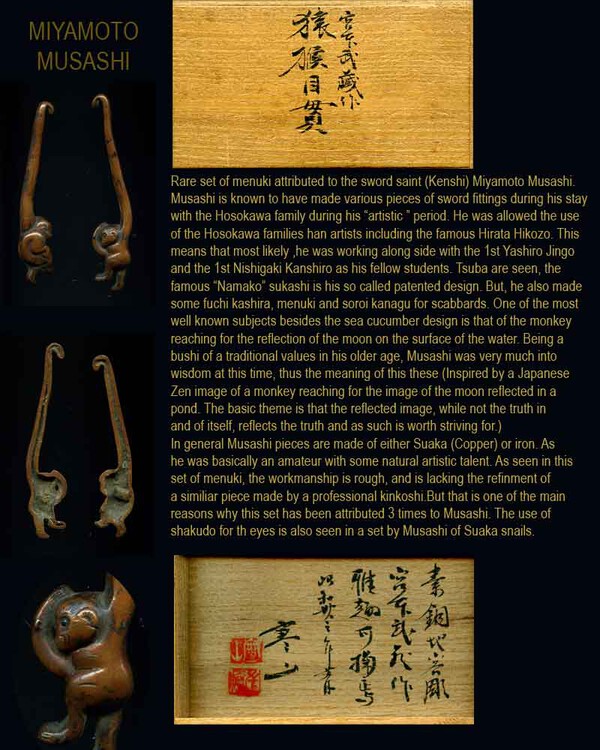 MIYAMOTO
MUSASHI
宮本武蔵作
猿猴目貫
Rare set of menuki attributed to the sword saint (Kenshi) Miyamoto Musashi.
Musashi is known to have made various pieces of sword fittings during his stay
with the Hosokawa family during his “artistic ” period. He was allowed the use
of the Hosokawa families han artists including the famous Hirata Hikozo. This
means that most likely ,he was working along side with the 1st Yashiro Jingo
and the 1st Nishigaki Kanshiro as his fellow students. Tsuba are seen, the
famous “Namako” sukashi is his so called patented design. But, he also made
some fuchi kashira, menuki and soroi kanagu for scabbards. One of the most
well known subjects besides the sea cucumber design is that of the monkey
reaching for the reflection of the moon on the surface of the water. Being a
bushi of a traditional values in his older age, Musashi was very much into
wisdom at this time, thus the meaning of this these (Inspired by a Japanese
Zen image of a monkey reaching for the image of the moon reflected in a
pond. The basic theme is that the reflected image, while not the truth in
and of itself, reflects the truth and as such is worth striving for.)
In general Musashi pieces are made of either Suaka (Copper) or iron. As
he was basically an amateur with some natural artistic talent. As seen in this
set of menuki, the workmanship is rough, and is lacking the refinment of
a similiar piece made by a professional kinkoshi.But that is one of the main
reasons why this set has been attributed 3 times to Musashi. The use of
shakudo for th eyes is also seen in a set by Musashi of Suaka snails.
素銅地容彫
宮本武蔵作
寒山